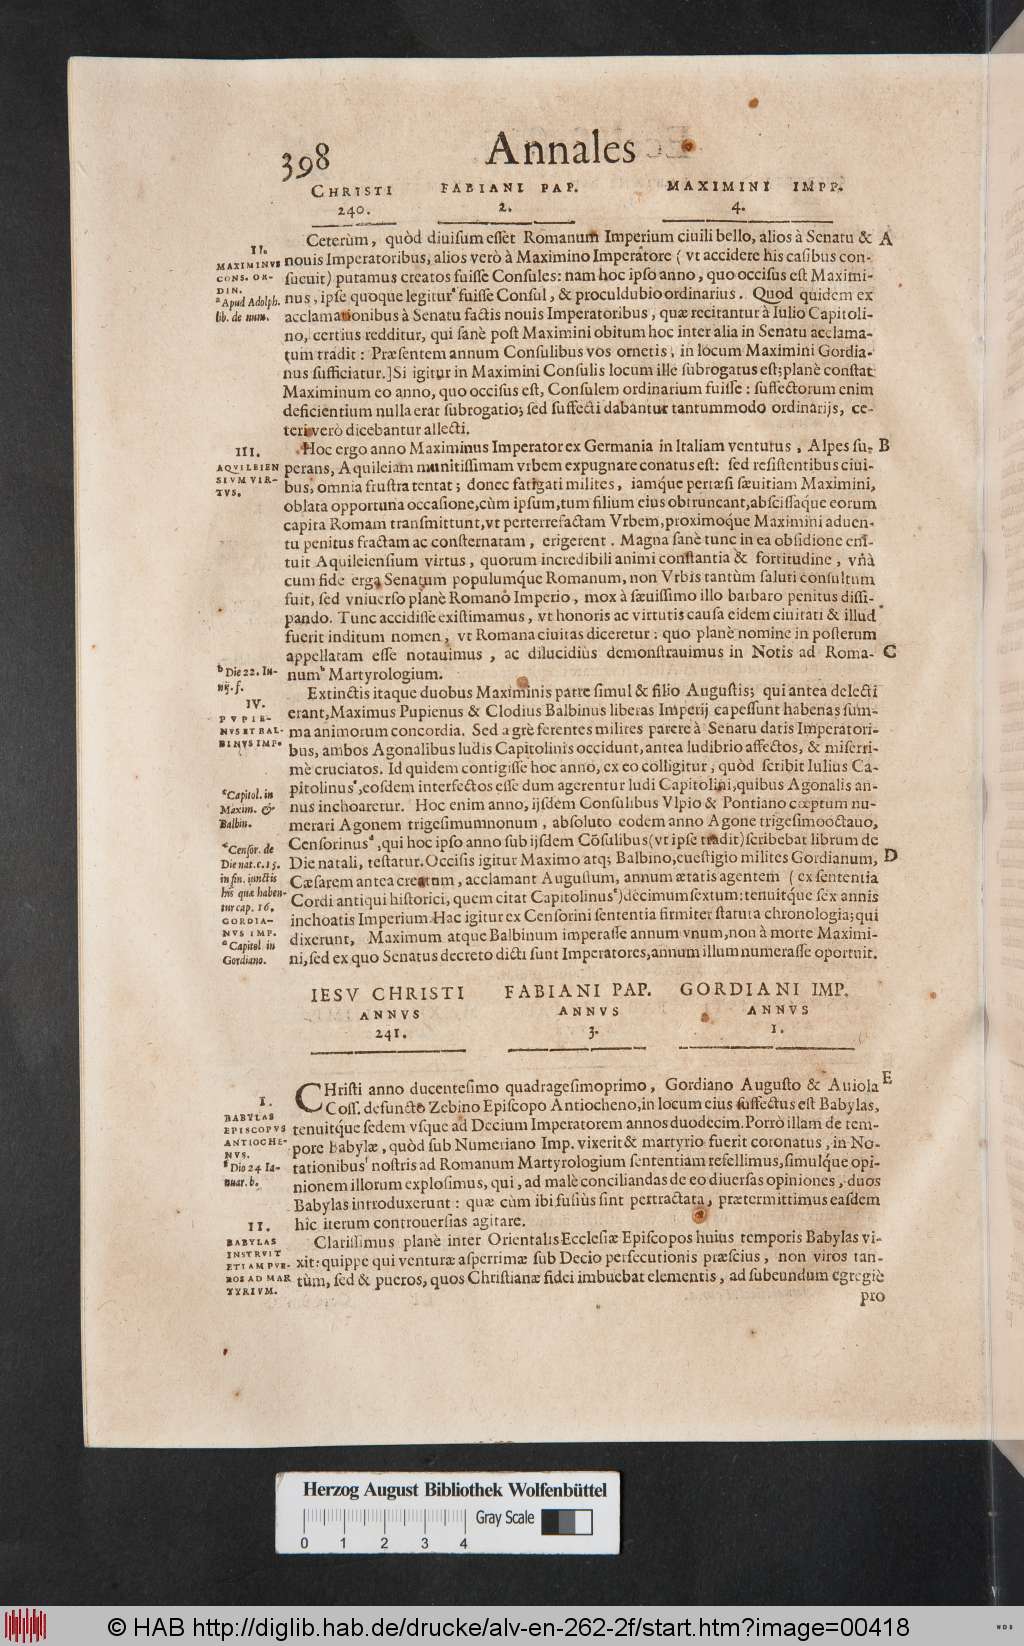 398 Annales
CHRISTI FABIANI PAP. MAXIMINI IMPP.
240. 2. 4.
Ceterùm, quòd diuisum esset Romanum Imperium ciuili bello, alios à Senatu & A
nouis Imperatoribus, alios verò à Maximino Imperatore ( vt accidere his casibus con-
sueuit) putamus creatos fuisse Consules: nam hoc ipso anno, quo occisus est Maximi-
nus, ipse quoque legitur a fuisse Consul, & proculdubio ordinarius. Quod quidem ex
acclamationibus à Senatu factis nouis Imperatoribus, quæ recitantur à Iulio Capitoli-
no, certius redditur, qui sanè post Maximini obitum hoc inter alia in Senatu acclama-
tum tradit: Præsentem annum Consulibus vos ornetis, in locum Maximini Gordia-
nus sufficiatur.] Si igitur in Maximini Consulis locum ille subrogatus est; planè constat
Maximinum eo anno, quo occisus est, Consulem ordinarium fuisse: suffectorum enim
deficientium nulla erat subrogatio; sed suffecti dabantur tantummodo ordinarijs, ce-
teri verò dicebantur allecti.
II.
MAXIMINVS
CONS. OR-
DIN.
a Apud Adolph.
lib. de num.
Hoc ergo anno Maximinus Imperator ex Germania in Italiam venturus, Alpes su- B
perans, Aquileiam munitissimam vrbem expugnare conatus est: sed resistentibus ciui-
bus, omnia frustra tentat; donec fatigati milites, iamq́ue pertæsi sæuitiam Maximini,
oblata opportuna occasione, cùm ipsum, tum filium eius obtruncant, abscissaque eorum
capita Romam transmittunt, vt perterrefactam Vrbem, proximoque Maximini aduen-
tu penitus fractam ac consternatam, erigerent. Magna sanè tunc in ea obsidione eni-
tuit Aquileiensium virtus, quorum incredibili animi constantia & fortitudine, vnà
cum fide erga Senatum populumq́ue Romanum, non Vrbis tantùm saluti consultum
fuit, sed vniuerso planè Romano Imperio, mox à sæuissimo illo barbaro penitus dissi-
pando. Tunc accidisse existimamus, vt honoris ac virtutis causa eidem ciuitati & illud
fuerit inditum nomen, vt Romana ciuitas diceretur: quo planè nomine in posterum
appellatam esse notauimus, ac dilucidiùs demonstrauimus in Notis ad Roma- C
num b Martyrologium.
III.
AQVILEIEN
SIVM VIR-
TVS.
b Die 22. Iu-
nij. f.
Extinctis itaque duobus Maximinis patre simul & filio Augustis; qui antea delecti
erant, Maximus Pupienus & Clodius Balbinus liberas Imperij capessunt habenas sum-
ma animorum concordia. Sed ægrè ferentes milites parere à Senatu datis Imperatori-
bus, ambos Agonalibus ludis Capitolinis occidunt, antea ludibrio affectos, & miserri-
mè cruciatos. Id quidem contigisse hoc anno, ex eo colligitur, quòd scribit Iulius Ca-
pitolinus c, eosdem interfectos esse dum agerentur ludi Capitolini, quibus Agonalis an-
nus inchoaretur. Hoc enim anno, ijsdem Consulibus Vlpio & Pontiano cœptum nu-
merari Agonem trigesimumnonum, absoluto eodem anno Agone trigesimooctauo,
Censorinus d, qui hoc ipso anno sub ijsdem Cõsulibus (vt ipse tradit) scribebat librum de
Die natali, testatur. Occisis igitur Maximo atq; Balbino, euestigio milites Gordianum, D
Cæsarem antea creatum, acclamant Augustum, annum ætatis agentem ( ex sententia
Cordi antiqui historici, quem citat Capitolinus e) decimumsextum: tenuitq́ue sex annis
inchoatis Imperium. Hac igitur ex Censorini sententia firmiter statuta chronologia; qui
dixerunt, Maximum atque Balbinum imperasse annum vnum, non à morte Maximi-
ni, sed ex quo Senatus decreto dicti sunt Imperatores, annum illum numerasse oportuit.
IV.
PVPIE-
NVS ET BAL-
BINVS IMP.
c Capitol. in
Maxim. &
Balbin.
Censor. de
Die nat. c. 15.
in fin. iunctis
his quæ haben-
tur cap. 16.
GORDIA-
NVS IMP.
Capitol. in
Gordiano.
IESV CHRISTI FABIANI PAP. GORDIANI IMP.
ANNVS ANNVS ANNVS
241. 3. 1.
CHristi anno ducentesimo quadragesimoprimo, Gordiano Augusto & Auiola E
Coss. defuncto Zebino Episcopo Antiocheno, in locum eius suffectus est Babylas,
tenuitq́ue sedem vsque ad Decium Imperatorem annos duodecim. Porrò illam de tem-
pore Babylæ, quòd sub Numeriano Imp. vixerit & martyrio fuerit coronatus, in No-
tationibus f nostris ad Romanum Martyrologium sententiam refellimus, simulq́ue opi-
nionem illorum explosimus, qui, ad malè conciliandas de eo diuersas opiniones, duos
Babylas introduxerunt: quæ cùm ibi fusiùs sint pertractata, prætermittimus easdem
hic iterum controuersias agitare.
I.
BABYLAS
EPISCOPVS
ANTIOCHE-
NVS.
f Die 24 Ia-
nuar. b.
Clarissimus planè inter Orientalis Ecclesiæ Episcopos huius temporis Babylas vi-
xit: quippe qui venturæ asperrimæ sub Decio persecutionis præscius, non viros tan-
tùm, sed & pueros, quos Christianæ fidei imbuebat elementis, ad subeundum egregiè
pro
II.
BABYLAS
INSTRVIT
ETIAM PVE-
ROS AD MAR
TYRIVM.
Herzog August Bibliothek Wolfenbüttel
Gray Scale
0 1 2 3 4
© HAB http://diglib.hab.de/drucke/alv-en-262-2f/start.htm?image=00418